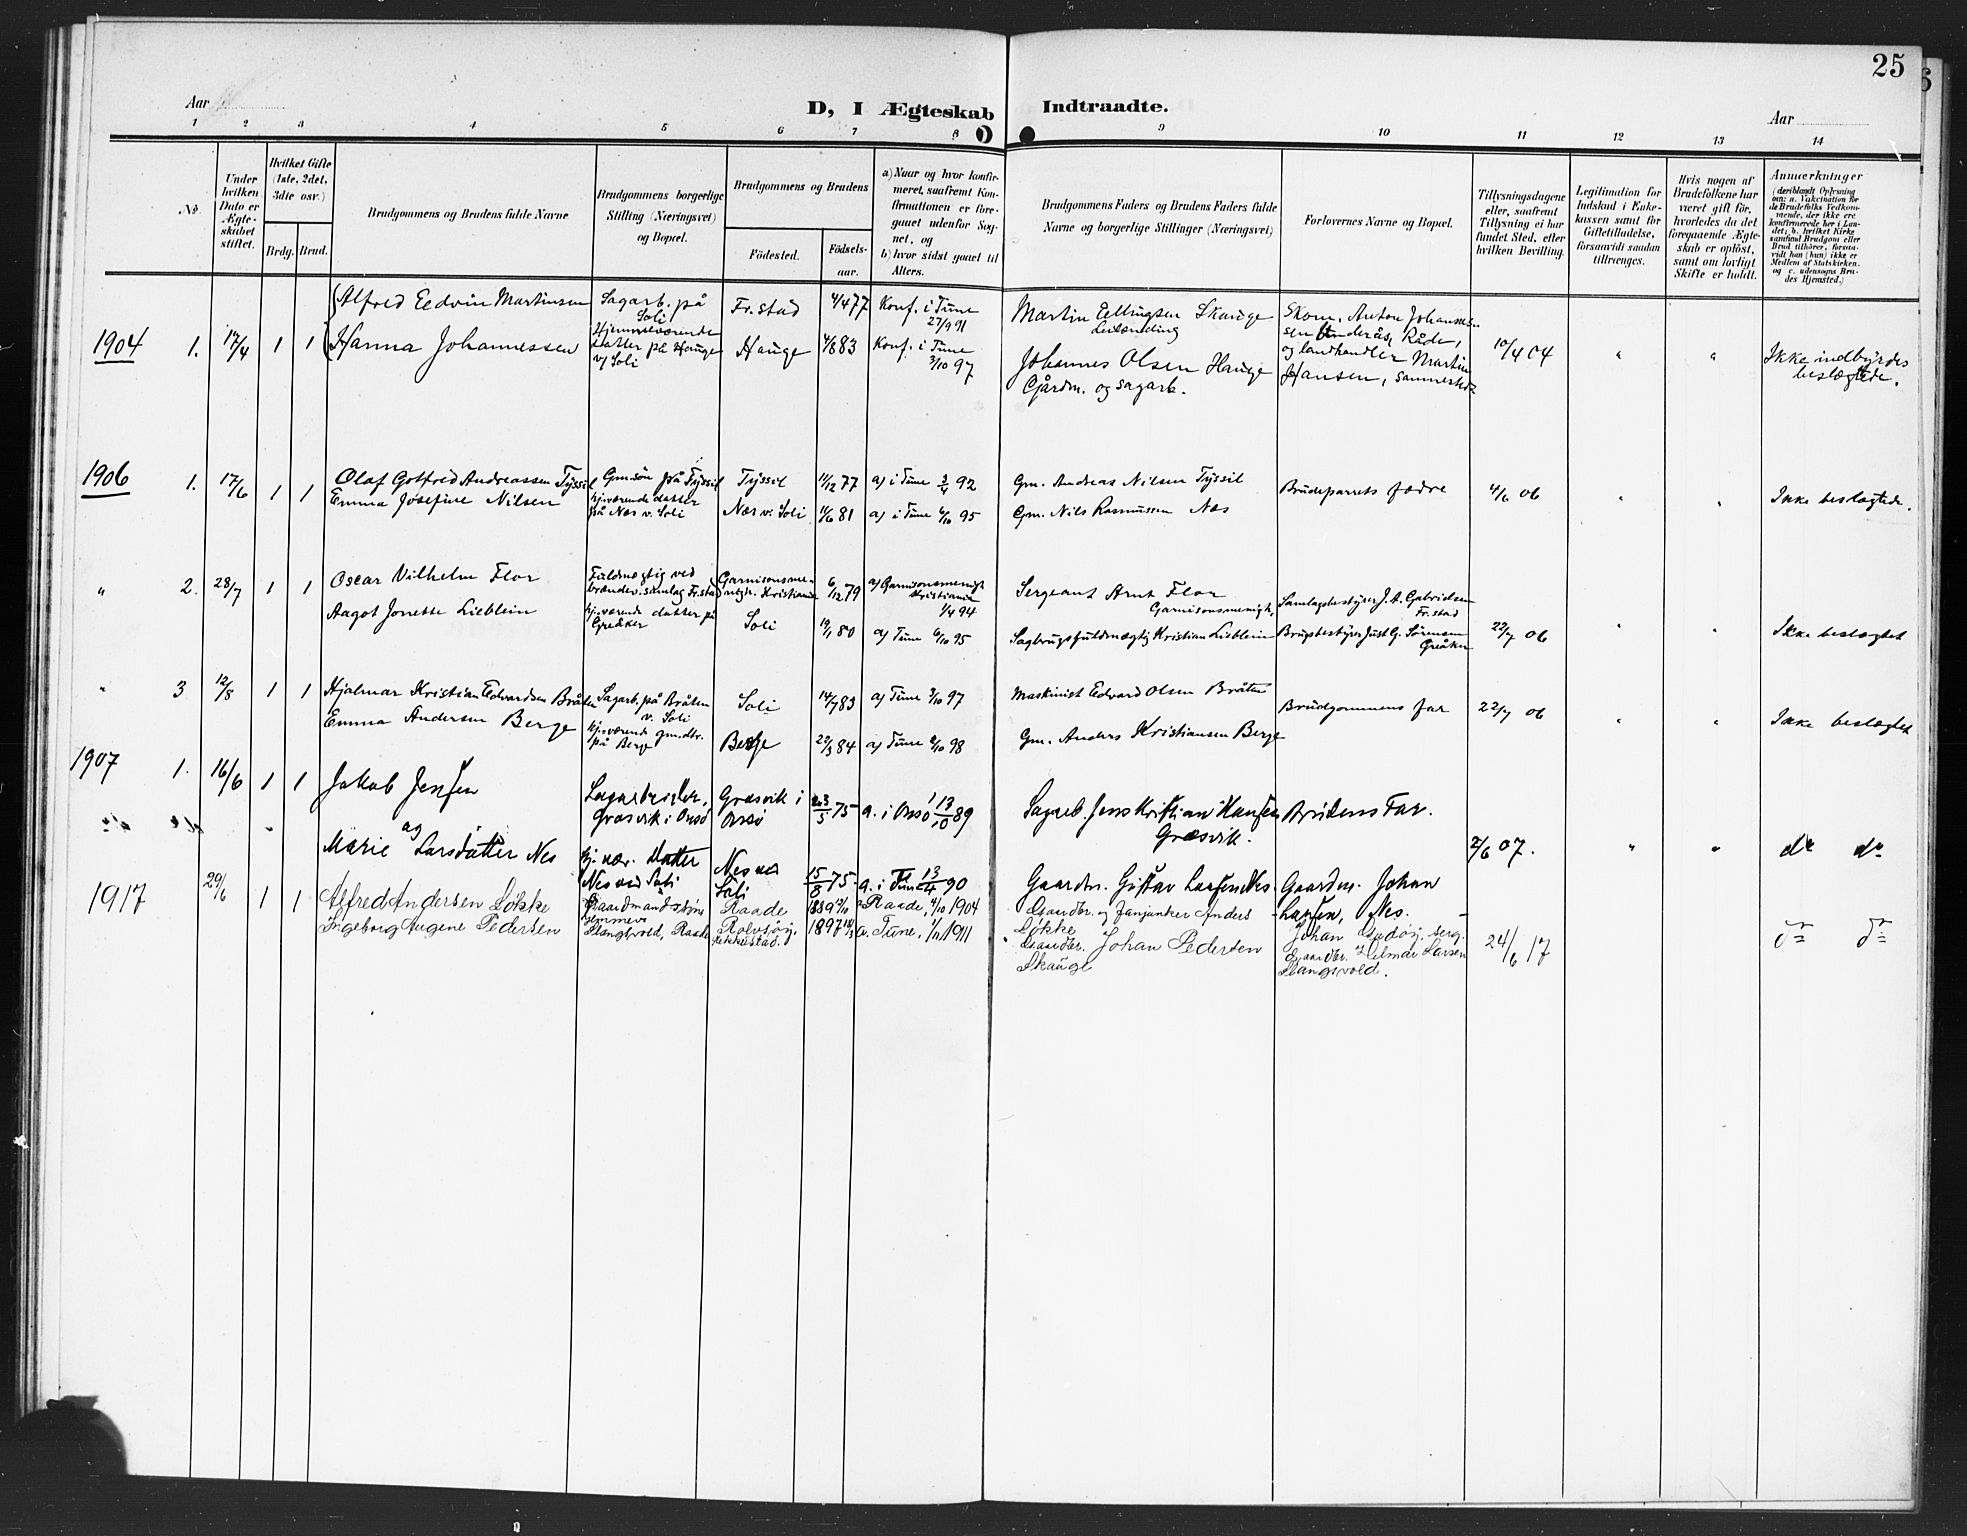 25
Aar
D, I Ægteskab Indtraadte.
Aar
1 2 3 4 5 6 7 8 9 10 11 12 13 14
No.
Under hvilken Dato er Ægteskabet stiftet.
Hvilket Gifte (1ste, 2det, 3die osv.)
Brdg. Brud.
Brudgommens og Brudens fulde Navne
Brudgommens borgerlige Stilling (Næringsvei) og Bopæl.
Brudgommens og Brudens
Födested.
Födsels-aar.
a) Naar og hvor konfirmeret, saafremt Konfirmationen er foregaaet udenfor Sognet, og
b) hvor sidst gaaet til Alters.
Brudgommens Faders og Brudens Faders fulde Navne og borgerlige Stillinger (Næringsvei)
Forlovernes Navne og Bopæl.
Tillysningsdagene eller, saafremt Tillysning ei har fundet Sted, efter hvilken Bevilling.
Legitimation for Indskud i Enkekassen samt for Giftetilladelse, forsaavidt saadan tiltrænges.
Hvis nogen af Brudefolkene har været gift för, hvorledes da det foregaaende Ægteskab er oplöst, samt om lovligt Skifte er holdt.
Anmærkninger
(deriblandt Oplysning om: a. Vakcination for de Brudefolks Vedkommende, der ikke ere konfirmerede her i Landet; b. hvilket Kirkesamfund Brudgom eller Brud tilhörer, forsaavidt han (hun) ikke er Medlem af Statskirken, og c. udensogns Brudes Hjemsted.)
1904 1. 17/4 1 1
Alfred Edvin Martinsen
Hanna Johannessen
Sagarb. på Soli
Hjemmeværende datter på Hauge v/ Soli
Fr.stad 4/4 77
Hauge 4/6 83
Konf. i Tune 27/9 91
Konf. i Tune 3/10 97
Martin Ellingsen Skauge
Leilending
Johannes Olsen Hauge
Gårdm. og sagarb.
Skom. Anton Johannes-
sen Underås, Råde,
og landhandler Martin
Hansen, sammesteds
10/4 04 " "
Ikke indbyrdes
beslægtede.
1906 1. 17/6 1 1
Olaf Gotfred Andreassen Tyssil
Emma Josefine Nilsen
Gm.søn på Tyssil
hj.værende datter
på Næs v. Soli
Tyssil 11/12 77
Næs v. Soli 11/6 81
a) i Tune 3/4 92
a) i Tune 6/10 95
Gm. Andreas Nilsen Tyssil
Gm. Nils Rasmussen Næs
Brudeparrets fædre
4/6 06 " "
Ikke beslægtede.
" 2. 28/7 1 1
Oscar Vilhelm Flor
Aagot Jonette Lieblein
Fuldmægtig ved
brændev.samlag Fr.stad
hj.værende datter på
Greåker
Garnisonsme-
nigh. Kristiania 6/12 79
Soli 19/1 80
a) Garnisonsmenigh.
Kristiania
1/4 94
a) Tune 6/10 95
Sergeant Arnt Flor
Garnisonsmenigh.
Sagbrugsfuldmægtig Kristian Lieblein
Samlagsbestyrer J. A. Gabrielsen
Fr.stad
Brugsbestyrer Just G. Sørensen
Greåker
22/7 06 " "
Ikke beslægtet
" 3 12/8 1 1
Hjalmar Kristian Edvardsen Bråten
Emma Andersen Berge
Sagarb. på Bråten
v. Soli
hj.værende gm.dtr.
på Berge
Soli 14/7 83
Berge 22/3 84
a) Tune 3/10 97
a) Tune 2/10 98
Maskinist Edvard Olsen Bråten
Gm. Anders Kristiansen Berge
Brudgommens far
22/7 06 " "
Ikke beslægtet
1907 1. 16/6 1 1
Jakob Jensen
og
Marie Larsdatter Nes
Sagarbeider,
Græsvik i Onsø
hj.vær. Datter
Nes ved Soli
Græsvik i
Onsø 23/5 75
Nes ved
Soli 15/8 75
a. i Onsø 13/10 89
a. i Tune 13/4 90
Sagarb. Jens Kristian Hansen
Græsvik.
Gaardbr. Gustav Larsen Nes
Brudens Far.
Gaardm. Johan
Larsen, Nes.
2/6 07. " "
do do
1917 29/6 1 1
Alfred Andersen Løkke
Ingeborg Augene Pedersen
Gaardmandssøn
hjemmev.
Slangsvold, Raade
Raade 1889
Rolvsøy,
1897
a. Raade, 4/10 1904
a. Tune, 1/11 1911
Gaardbr. og fanjunker Anders
Løkke
Gaardbr. Johan Pedersen
Skauge
Johan serg.
Gaardbr. Hilmar Larsen
Slangsvold.
24/6 17
do do